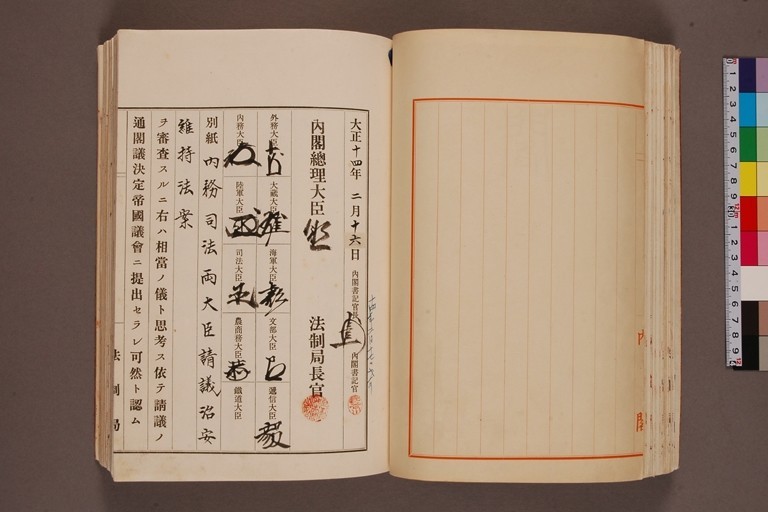 大正十四年 二月十六日
内閣書記官長
内閣書記官
内閣總理大臣
法制局長官
外務大臣
大藏大臣
海軍大臣
文部大臣
遞信大臣
内務大臣
陸軍大臣
司法大臣
農商務大臣
鐵道大臣
別紙内務司法両大臣請議治安
維持法案
ヲ審査スルニ右ハ相當ノ儀ト思考ス依テ請議ノ
通閣議決定帝國議會ニ提出セラレ可然ト認ム
法制局
内閣